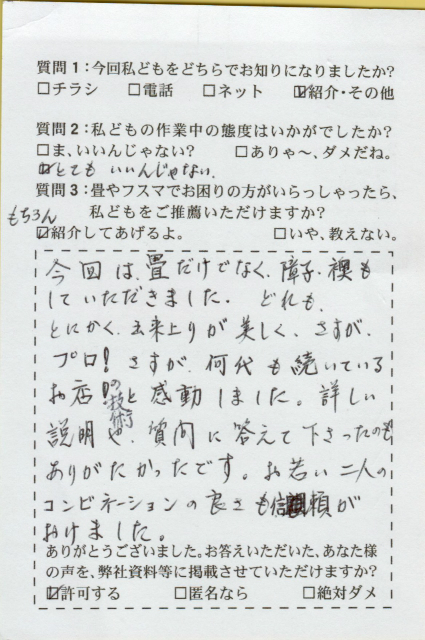 質問1：今回私どもをどちらでお知りになりましたか?
□チラシ □電話 □ネット ☑紹介・その他
質問2：私どもの作業中の態度はいかがでしたか?
□ま、いいんじゃない? □ありゃ〜、ダメだね。
☑とても いいんじゃない。
質問3：畳やフスマでお困りの方がいらっしゃったら、
もちろん 私どもをご推薦いただけますか?
☑紹介してあげるよ。 □いや、教えない。
今回は、畳だけでなく、障子、襖も
していただきました。どれも、
とにかく、出来上りが美しく、さすが、
プロ! さすが、何代も続いている
お店!の技術と感動しました。詳しい
説明や、質問に答えて下さったのも
ありがたかったです。お若い二人の
コンビネーションの良さも信頼が
おけました。
ありがとうございました。お答えいただいた、あなた様
の声を、弊社資料等に掲載させていただけますか?
☑許可する □匿名なら □絶対ダメ